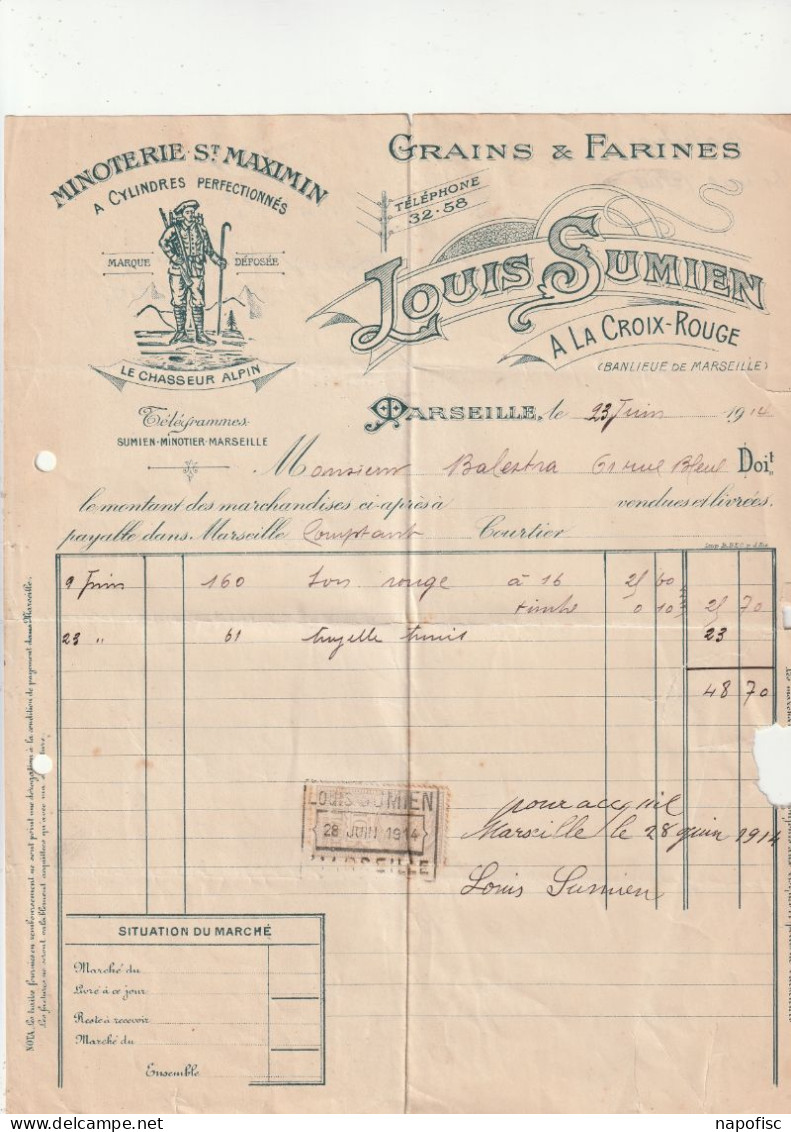 MINOTERIE ST MAXIMIN
A CYLINDRES PERFECTIONNÉS
MARQUE DÉPOSÉE
LE CHASSEUR ALPIN
Télégrammes
SUMIEN-MINOTIER-MARSEILLE
GRAINS & FARINES
TÉLÉPHONE
32-58
LOUIS SUMIEN
A LA CROIX-ROUGE
(BANLIEUE DE MARSEILLE)
MARSEILLE, le 23 Juin 1914
Monsieur Balestra 61 rue Bleue Doit
le montant des marchandises ci-après à vendues et livrées.
payable dans Marseille Comptant Courtier
9 Juin 160 Son rouge à 16 25 60
timbre 0 10 25 70
23 " 61 tuzelle tunis 23
48 70
LOUIS SUMIEN
28 JUIN 1914
MARSEILLE
pour acquit
Marseille le 28 juin 1914
Louis Sumien
SITUATION DU MARCHÉ
Marché du
Livré à ce jour
Reste à recevoir
Marché du
Ensemble
NOTA. Les traites fournies en remboursement ne sont point une dérogation à la condition de payement dans Marseille.
Les factures ne seront valablement acquittées qu'avec ma
napofisc